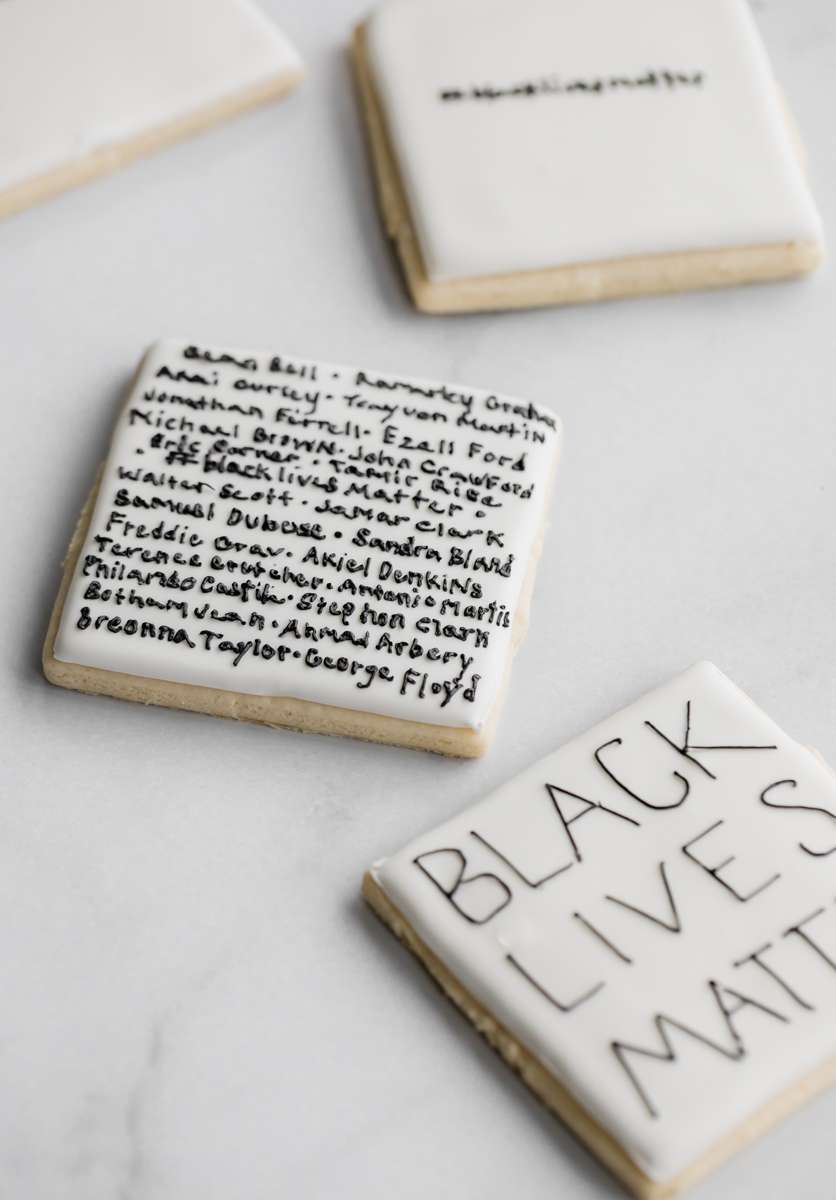 #blacklivesmatter
Sean Bell · Ramarley Graham
Akai Gurley · Trayvon Martin
Jonathan Ferrell · Ezell Ford
Michael Brown · John Crawford
Eric Garner · Tamir Rice
· #blacklivesMatter ·
Walter Scott · Jamar Clark
Samuel Dubose · Sandra Bland
Freddie Gray · Akiel Denkins
Terence Crutcher · Antonio Martin
Philando Castile · Stephon Clark
Botham Jean · Ahmad Arbery
Breonna Taylor · George Floyd
BLACK
LIVES
MATT